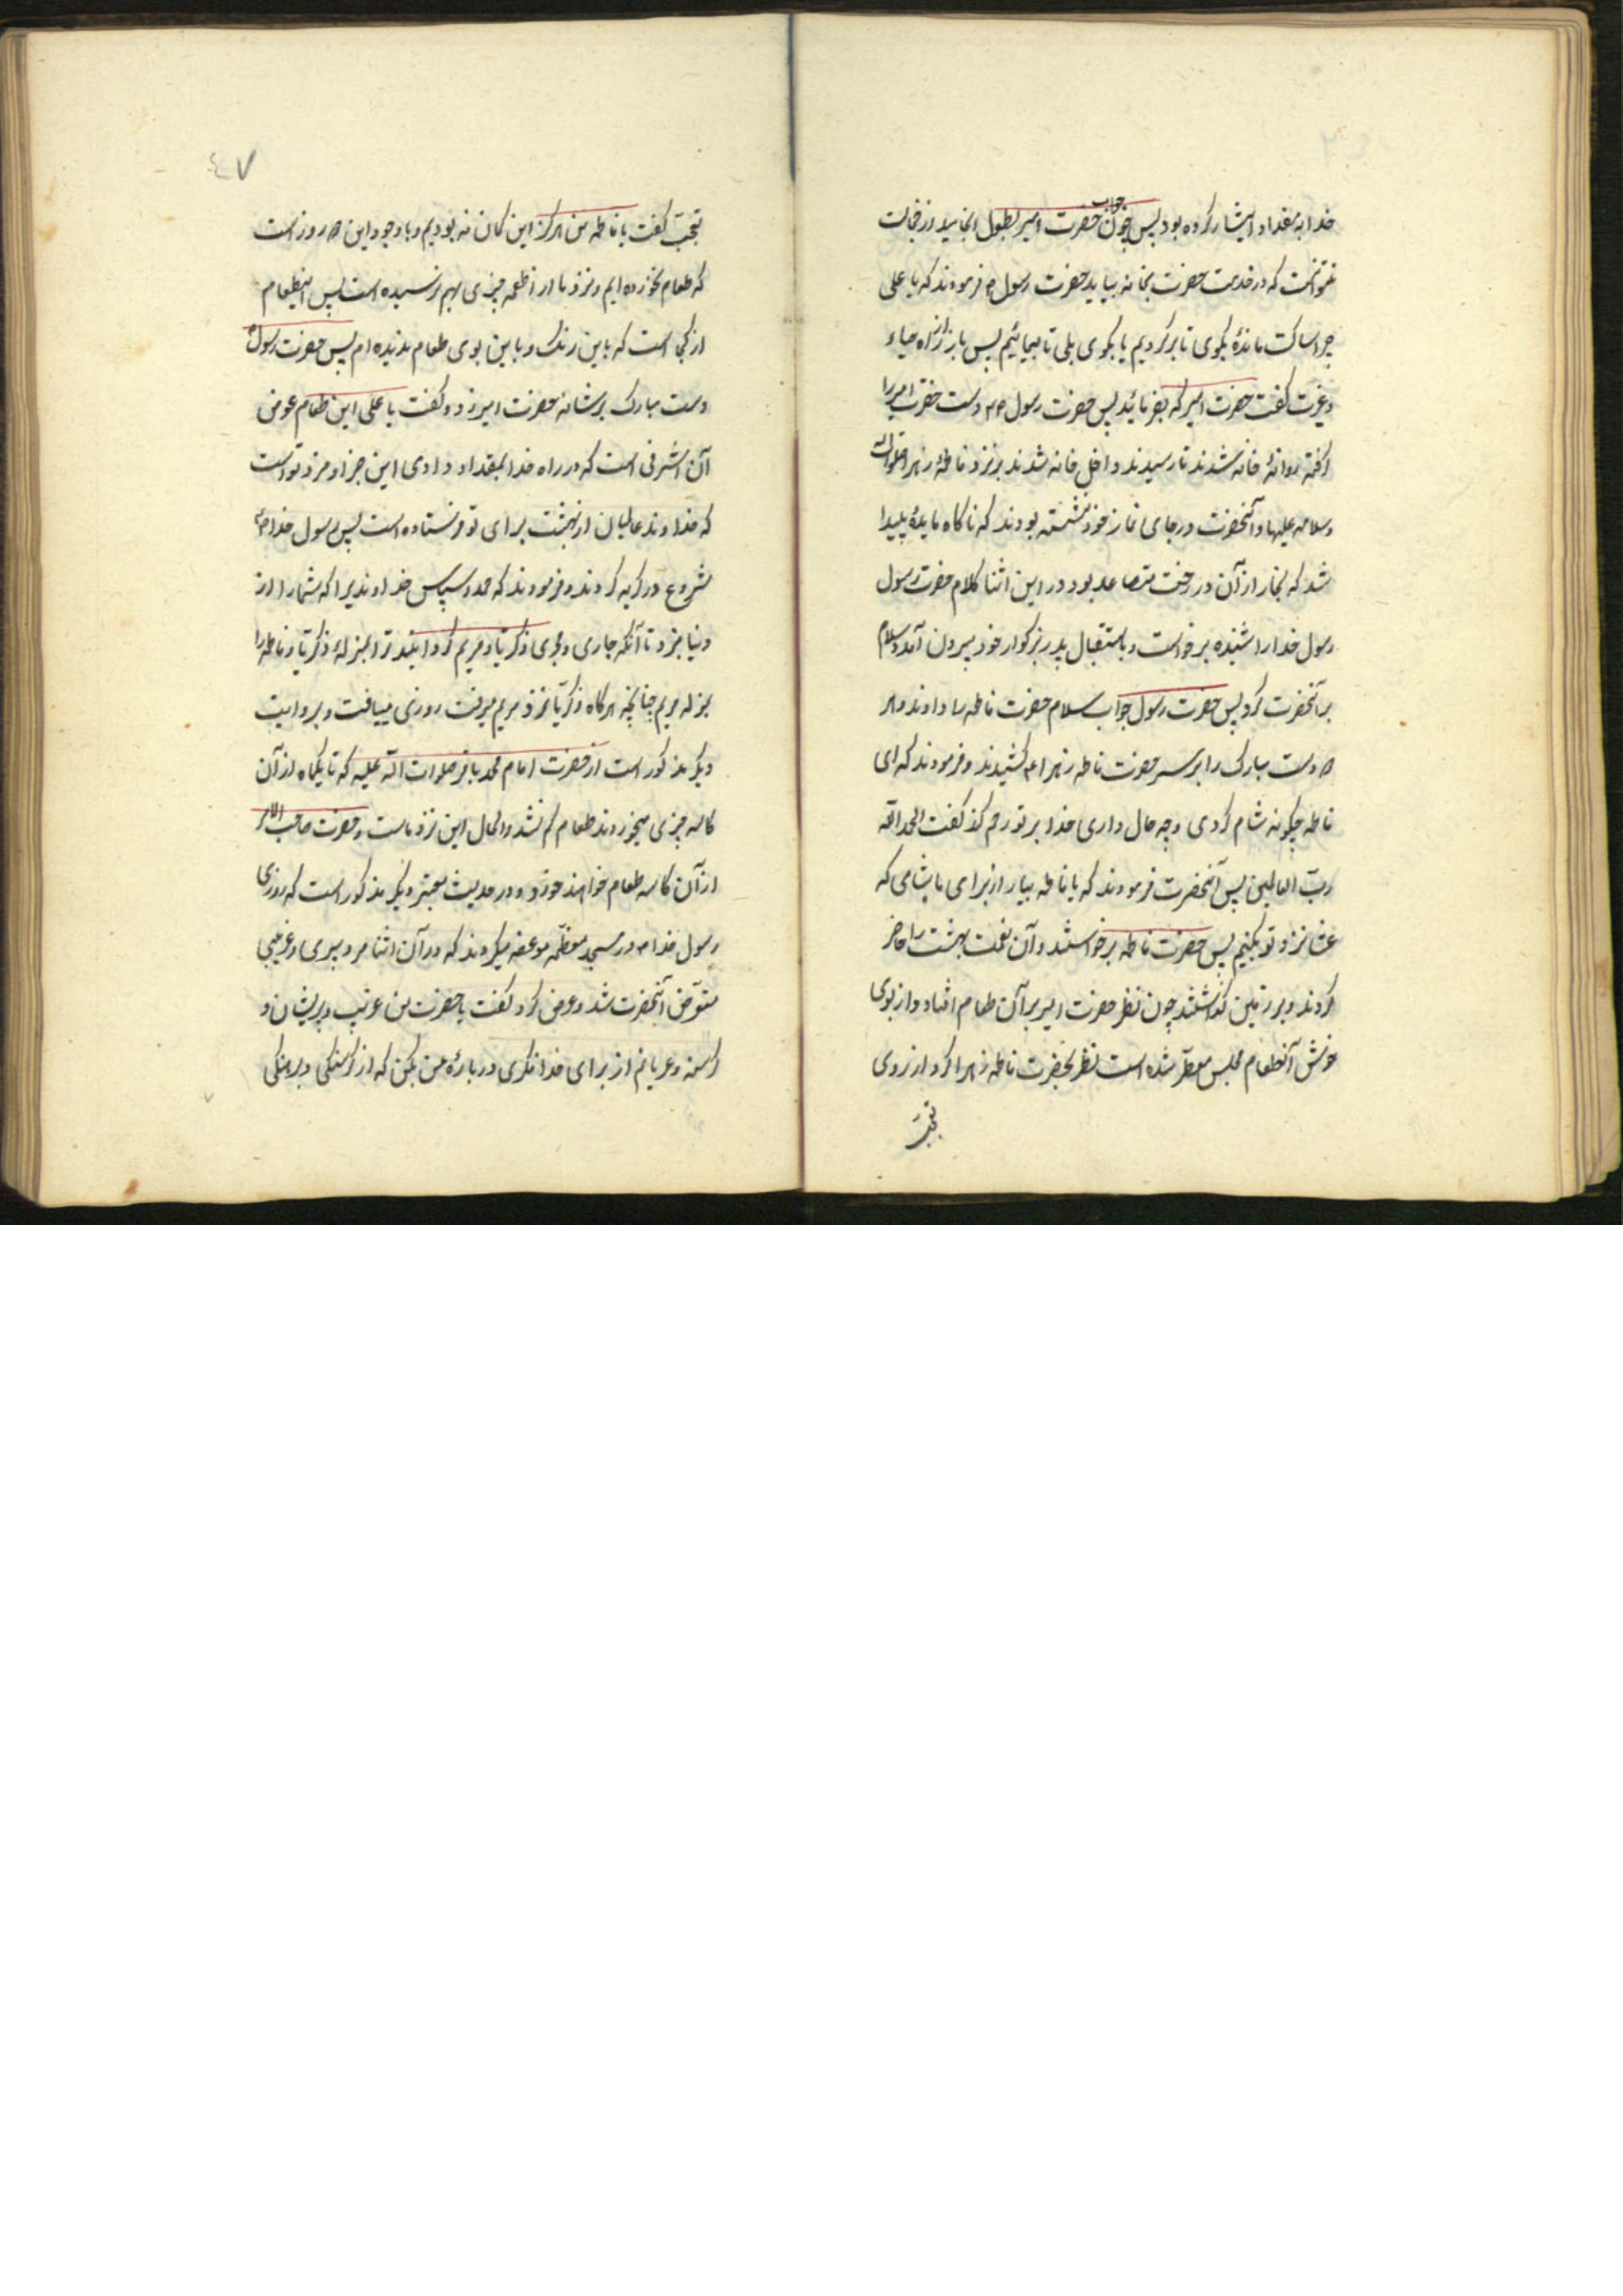 خدا بمقداد ایثار کرده بود پس چون جواب حضرت امیر بطول انجامید از خجالت
نتوانست که در خدمت حضرت بخانه بیاید حضرت رسول ص فرمودند که یا علی
چرا ساکت ماندهٔ بکوی تا برکردیم یا بکوی بلی تا بیائیم پس باز از راه حیاء
و غیرت کفت حضرت امیر که بفرمائید پس حضرت رسول ص دست حضرت امیر را
کرفته روانهٔ خانه شدند تا رسیدند داخل خانه شدند بر نزد فاطمهٔ زهرا صلوات اله
وسلامه علیها و آنحضرت در جای نماز خود نشسته بودند که ناکاه مایدهٔ پیدا
شد که بخار از آن درخت متصاعد بود در این اثنا کلام حضرت رسول
رسول خدا را شنیده برخواست و باستقبال پدر بزرکوار خود بیرون آمد و سلام
بر آنحضرت کرد پس حضرت رسول جواب سلام حضرت فاطمه را دادند و هر
دست مبارک را بر سر حضرت فاطمه زهرا ع کشیدند و فرمودند که ای
فاطمه چکونه شام کردی و چه حال داری خدا بر تو رحم کند کفت الحمد اللّه
ربّ العالمین پس آنحضرت فرمودند که یا فاطمه بیار از برای ما شامی که
عشا نزد تو بکنیم پس حضرت فاطمه برخواستند و آن نعمت بهشت را حاضر
کردند و بر زمین کذاشتند چون نظر حضرت امیر بر آن طعام افتاد و از بوی
خوش آنطعام مجلس معطّر شده است نظر بحضرت فاطمه زهرا کرد از روی
تعجّب
٤٧
تعجّب کفت یا فاطمه من هرکز این کمان نه بودیم و با وجود این روز است
که طعام نخورده ایم و نزد ما از اطعمه چیزی بهم نرسیده است پس اینطعام
از کجا است که باین رنک و باین بوی طعام ندیده ام پس حضرت رسول
دست مبارک بر شانهٔ حضرت امیر زد و کفت یا علی این طعام عوض
آن اشرفی است که در راه خدا بمقداد دادی این جزا و مزد تو است
که خداوند عالمیان از بهشت برای تو فرستاده است پس رسول خدا ص
شروع در کریه کردند و فرمودند که حمد و سپاس خداوندیرا که شما را از
دنیا نبرد تا آنکه جاری و مجری زکریّا و مریم کردانید ترا بمنزلهٔ ذکریّا و فاطمه را
بمنزله مریم چنانچه هرکاه ذکریّا نزد مریم میرفت روزی مییافت و بروایت
دیکر مذکور است از حضرت امام محمد باقر صلوات اللّه علیه که تا یکماه از آن
کاسه چیزی میخوردند طعام کم نشد و الحال این نزد ماست و حضرت صاحب الامر
از آن کاسه طعام خواهند خورد و در حدیث معتبر دیکر مذکور است که روزی
رسول خدا ص در مسجد معظّمه موعظه میکردند که در آن اثنا مرد پیری و غریبی
متعرّض آنحضرت شد و عرض کرد کفت یا حضرت من غریب و پریشان و
کرسنه و عریانم از برای خدا فکری در بارهٔ من بکن که از کرسنکی و برهنکی